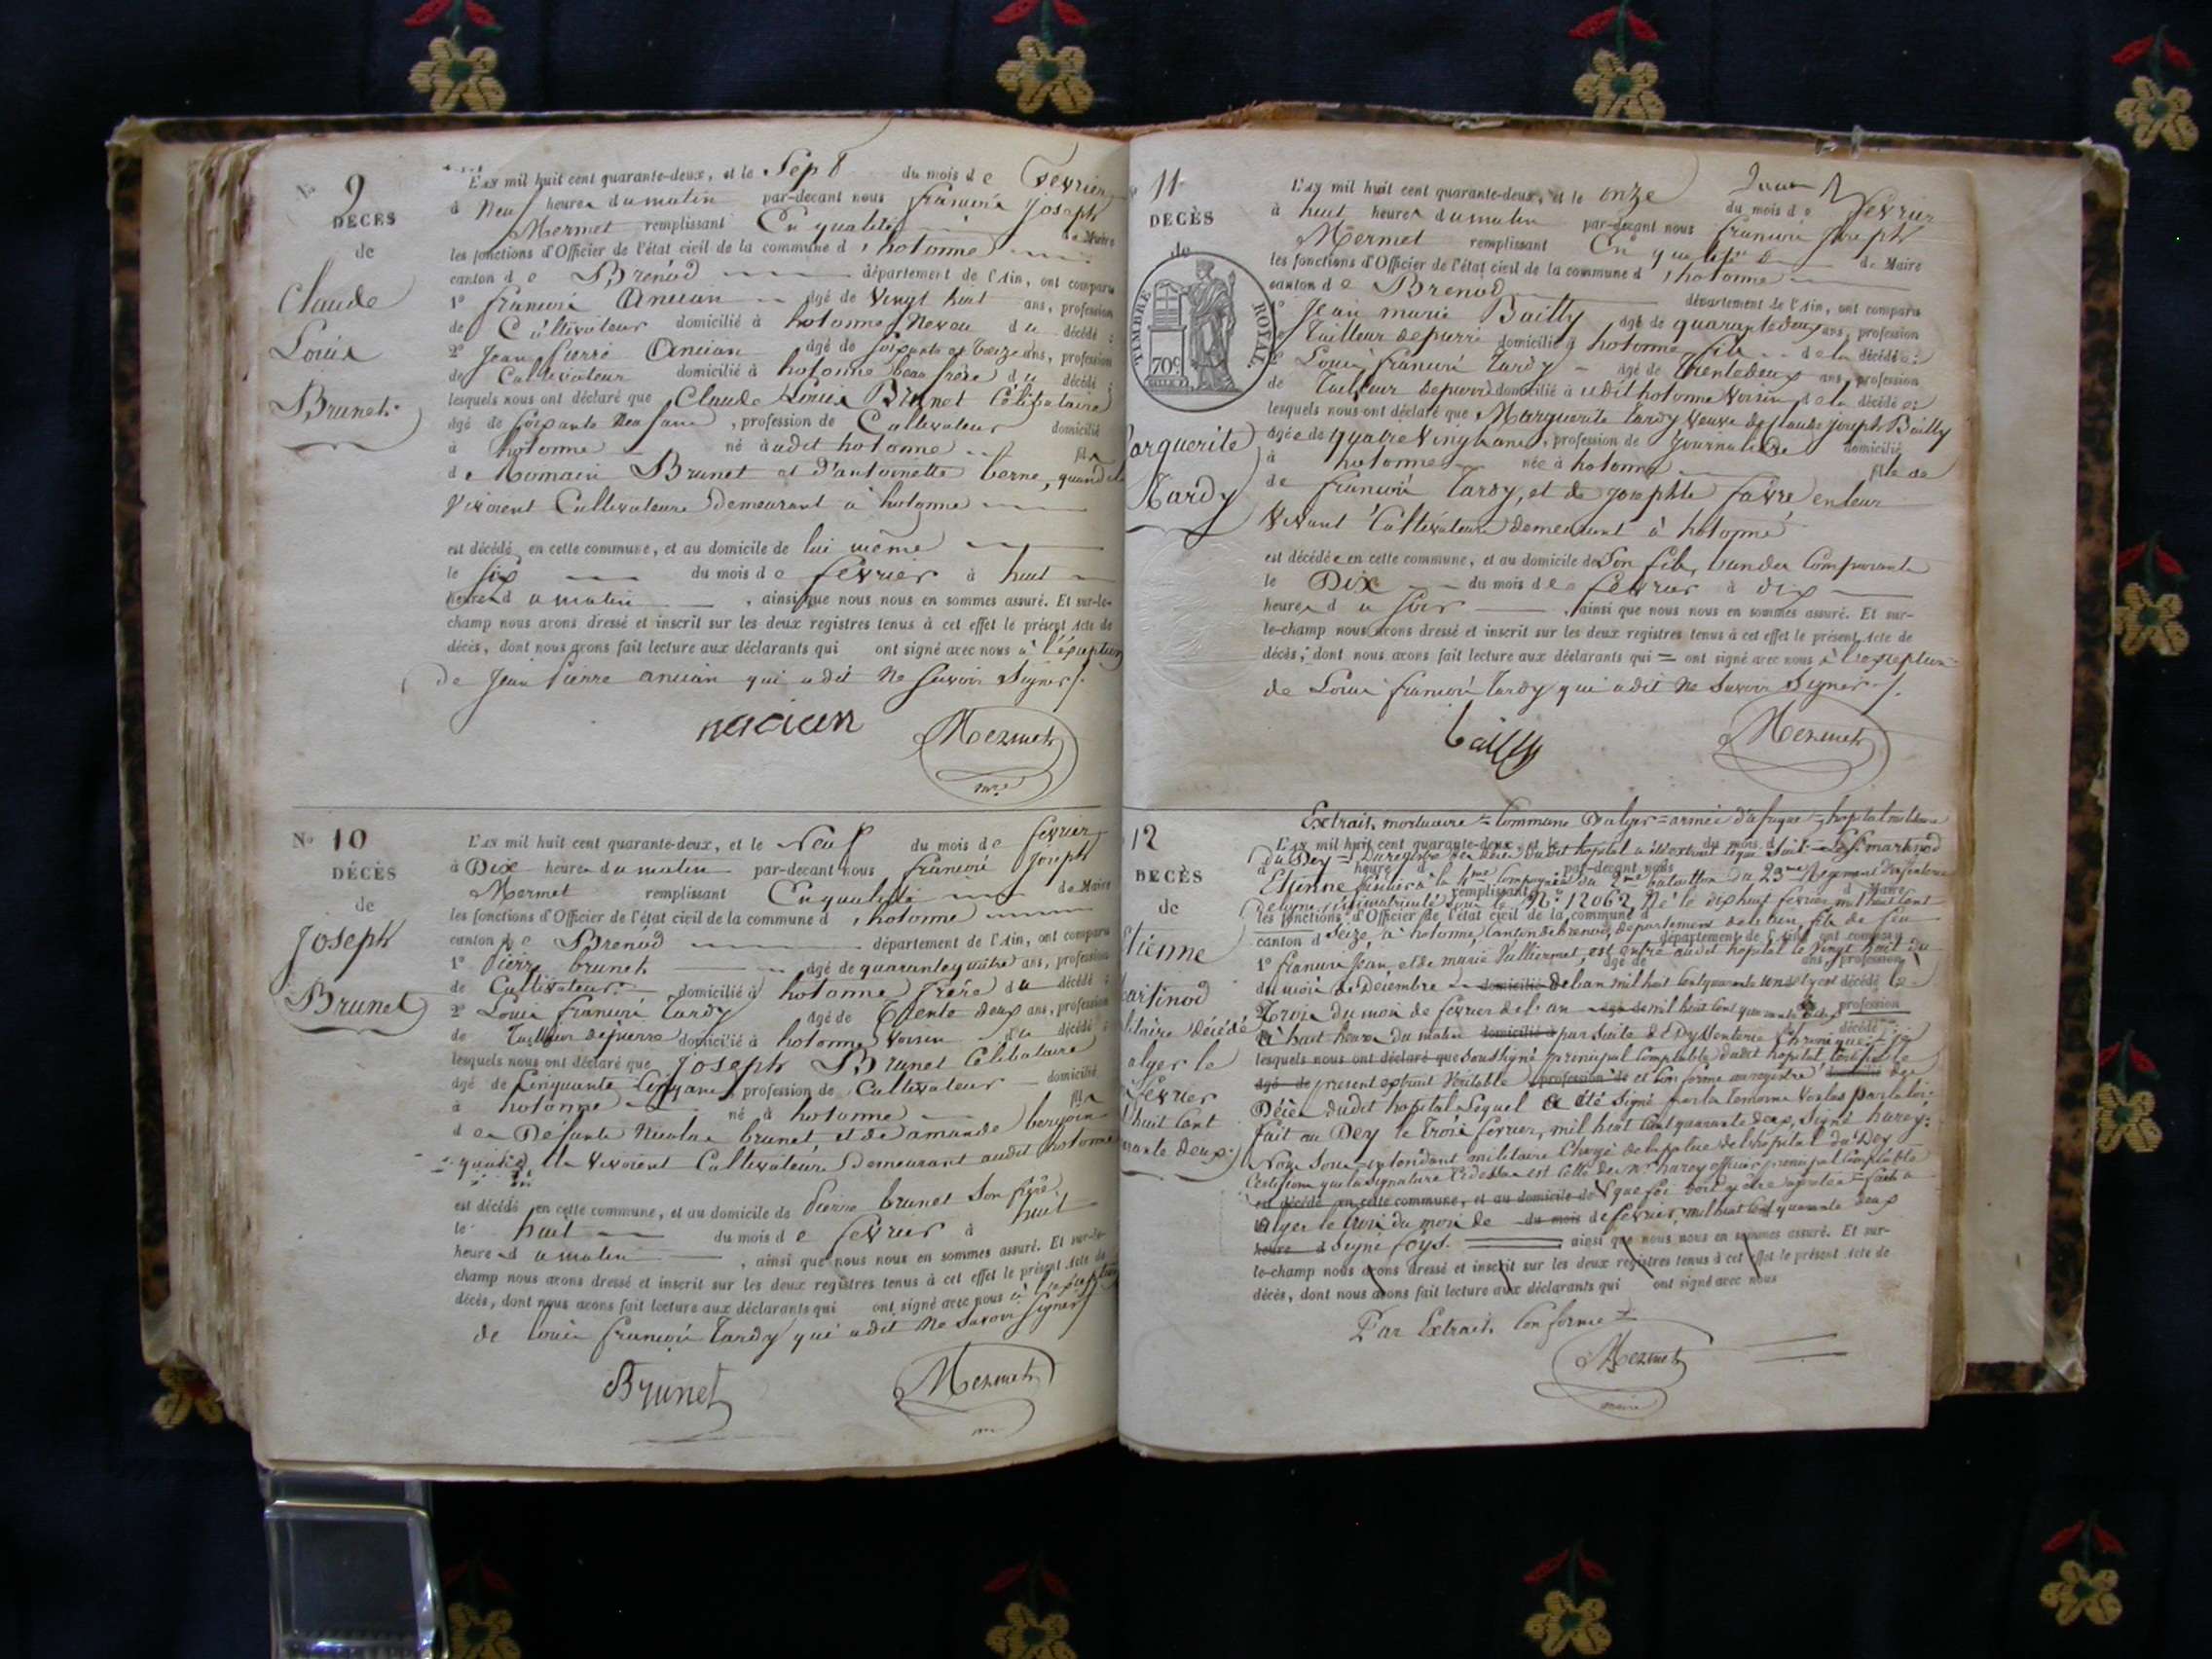 No 9
DÉCÈS
de
Claude
Louis
Brunet
L'an mil huit cent quarante-deux, et le Sept du mois de Fevrier
à Neuf heures du matin par-devant nous françois Joseph
Mermet remplissant En qualité de Maire
les fonctions d'Officier de l'état civil de la commune d'hotonne
canton de Brenod département de l'Ain, ont comparu
1° françois Ancian âgé de Vingt huit ans, profession
de Cultivateur domicilié à hotonne Neveu du décédé ;
2° Jean pierre Ancian âgé de soixante et treize ans, profession
de Cultivateur domicilié à hotonne beau frère du décédé ;
lesquels nous ont déclaré que Claude Louis Brunet Célibataire
âgé de soixante Neuf ans , profession de Cultivateur domicilié
à hotonne né audit hotonne fils
de Romain Brunet et d'antoinette berne, quand ils
Vivoient Cultivateurs Demeurant à hotonne
est décédé en cette commune, et au domicile de lui même
le six du mois de fevrier à huit
heures du matin , ainsi que nous nous en sommes assuré. Et sur-le-
champ nous avons dressé et inscrit sur les deux registres tenus à cet effet le présent Acte de
décès, dont nous avons fait lecture aux déclarants qui ont signé avec nous à l'exception
de Jean Pierre ancian qui a dit Ne savoir Signer ./.
Mermet
No 10
DÉCÈS
de
Joseph
Brunet
L'an mil huit cent quarante-deux, et le Neuf du mois de fevrier
à Dix heures du matin par-devant nous françois Joseph
Mermet remplissant En qualité de Maire
les fonctions d'Officier de l'état civil de la commune d'hotonne
canton de Brenod département de l'Ain, ont comparu
1° Pierre brunet âgé de quarante quatre ans, profession
de Cultivateur domicilié à hotonne frère du décédé ;
2° Louis françois Tardy âgé de Trente deux ans, profession
de Tailleur de pierre domicilié à hotonne Voisin du décédé ;
lesquels nous ont déclaré que Joseph Brunet Célibataire
âgé de Cinquante Cinq ans , profession de Cultivateur domicilié
à hotonne né à hotonne fils
de Défunts Nicolas brunet et de amande
quand ils Vivoient Cultivateurs Demeurant audit hotonne
est décédé en cette commune, et au domicile de Pierre brunet Son frère
le huit du mois de fevrier à huit
heures du matin , ainsi que nous nous en sommes assuré. Et sur-le-
champ nous avons dressé et inscrit sur les deux registres tenus à cet effet le présent Acte de
décès, dont nous avons fait lecture aux déclarants qui ont signé avec nous à l'exception
de louis françois Tardy qui a dit Ne Savoir Signer
Brunet Mermet
11
DÉCÈS
de
TIMBRE ROYAL
70c
arguerite
Tardy
L'an mil huit cent quarante-deux, et le onze du mois de fevrier
à huit heures du matin par-devant nous françois Joseph
Mermet remplissant En qualité de Maire
les fonctions d'Officier de l'état civil de la commune d'hotonne
canton de Brenod département de l'Ain, ont comparu
1° Jean marie Bailly âgé de quarante deux ans, profession
de Tailleur de pierre domicilié à hotonne fils de la décédée ;
2° Louis françois Tardy âgé de trente deux ans, profession
de Tailleur de pierre domicilié à udit hotonne Voisin de la décédée ;
lesquels nous ont déclaré que Marguerite tardy Veuve de Claude joseph Bailly
âgée de quatre Vingts ans , profession de Journalière domicilié
à hotonne née à hotonne fille de
de françois Tardy, et de Josephte favre en leur
Vivant Cultivateurs demeurant à hotonne
est décédée en cette commune, et au domicile de Son fils, l'un des Comparants
le Dix du mois de fevrier à dix
heures du soir , ainsi que nous nous en sommes assuré. Et sur-
le-champ nous avons dressé et inscrit sur les deux registres tenus à cet effet le présent Acte de
décès, dont nous avons fait lecture aux déclarants qui = ont signé avec nous à l'exception
de Louis françois Tardy qui a dit Ne Savoir Signer ./.
bailly Mermet
12
DÉCÈS
de
tienne
artinod
litaire décédé
alger le
fevrier
huit Cent
rante deux
Extrait mortuaire = Commune D'alger = armée d'afrique = hopital militaire
L'an mil huit cent quarante-deux, et le du mois d
du Dey = Du registre des décès du dit hopital a été extrait ce qui Suit = Le Sr martinod
à heure d par-devant nous
Etienne fusilier à la 4me Compagnie du 2me bataillon du 23me Régiment d'infanterie
remplissant de Maire
De ligne, immatriculé Sous le No 12062 Né le dix huit fevrier mil huit Cent
les fonctions d'Officier de l'état civil de la commune d
canton d Seize, à hotonne, Canton de brenod, departement de l'ain, fils de feu
département de l'Ain, ont comparu
1° françois Jean, et de marie Vulliermet, est entré audit hopital le Vingt huit du
âgé de ans, profession
du mois de Decembre domicilié De l'an mil huit Cent quarante un et y est décédé le
Trois du mois de fevrier de l'an âgé de mil huit Cent quarante deux profession
à huit heures du matin domicilié à par Suite de Dyssenterie Chronique = je décédé ;
lesquels nous ont déclaré que Soussigné principal Comptable dudit hopital
âgé de present extrait Véritable profession de et Conforme au registre domicilié des
Décès dudit hopital Lequel a été Signé
fait au Dey le trois fevrier, mil huit Cent quarante deux, Signé harey.
Nous Sous-intendant militaire Chargé de la police de l'hopital du Dey
Certifions que la Signature Cidessus est Celle de Mr harey officier principal Comptable
est décédé en cette commune, et au domicile de que foi doit y etre ajoutée = fait à
alger le trois du mois de du mois de fevrier, mil huit Cent quarante deux
heure d Signé foys. ainsi que nous nous en sommes assuré. Et sur-
le-champ nous avons dressé et inscrit sur les deux registres tenus à cet effet le présent Acte de
décès, dont nous avons fait lecture aux déclarants qui ont signé avec nous
Par Extrait Conforme =
Mermet
maire